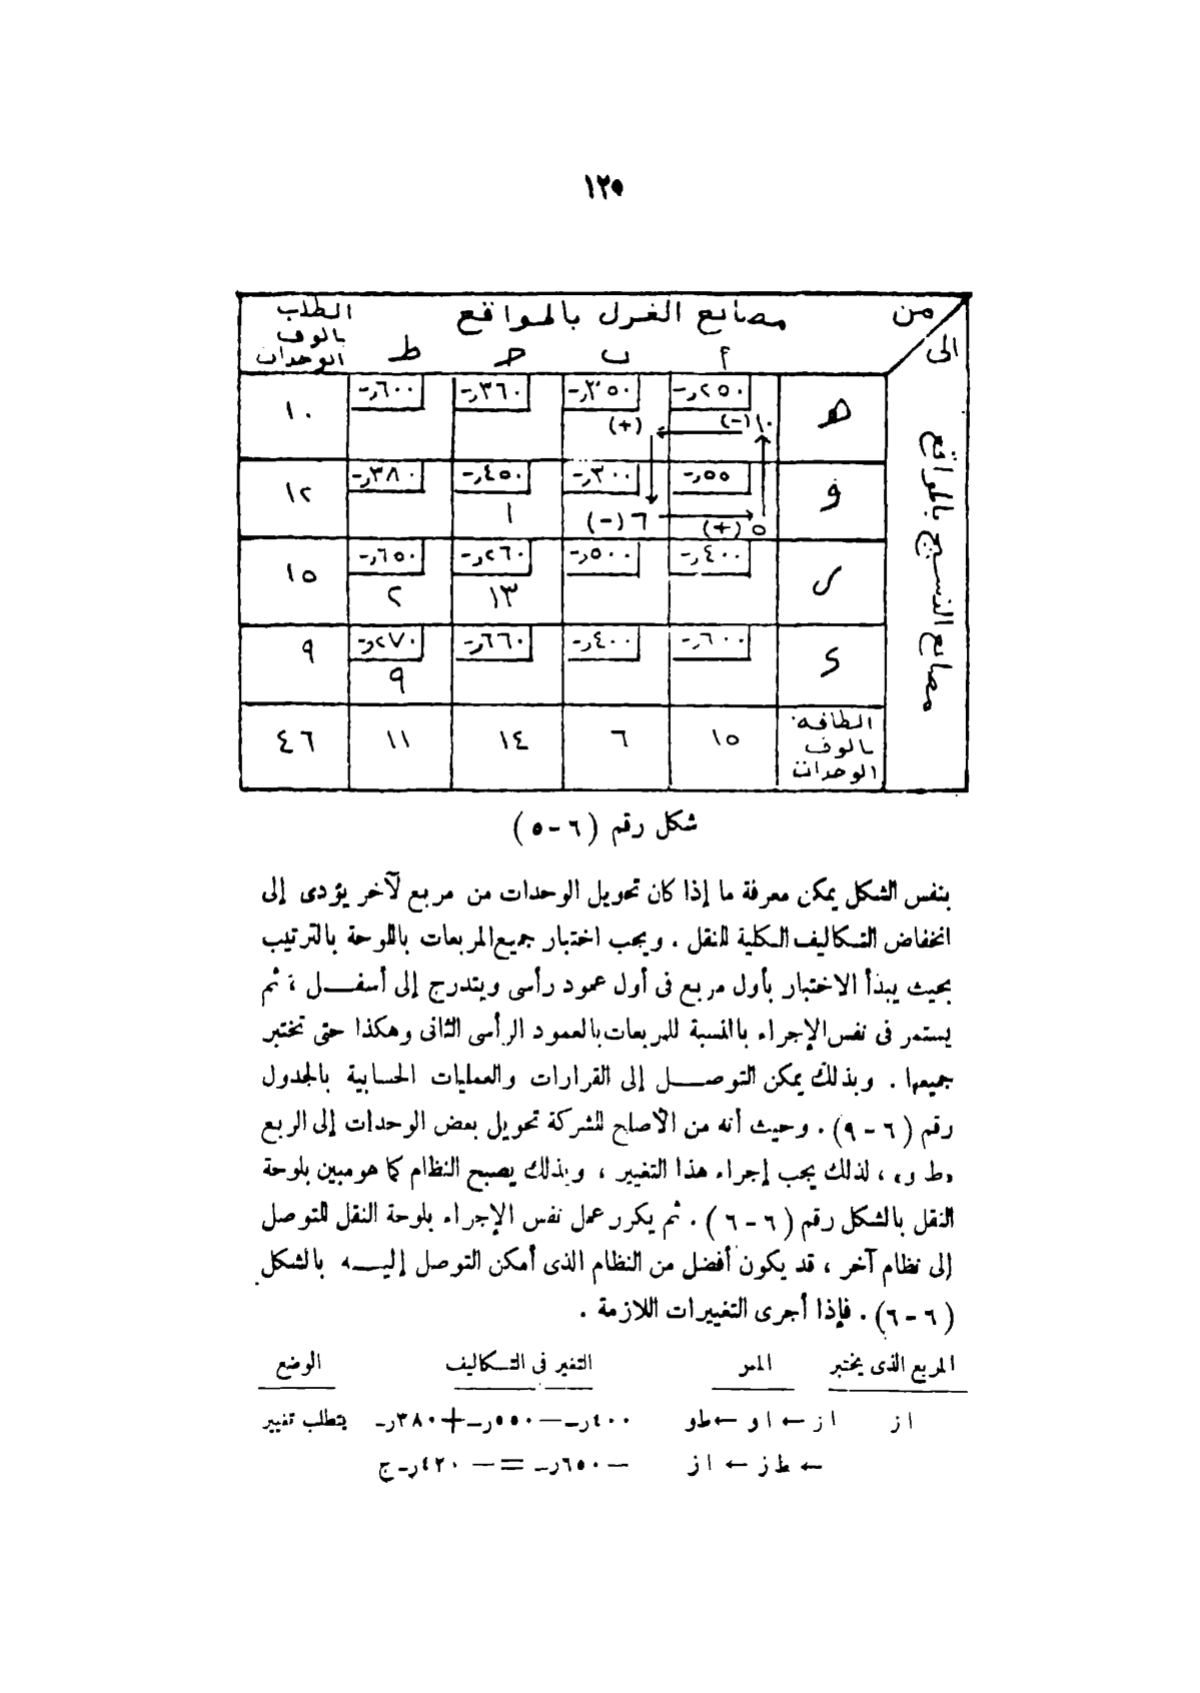 ١٢٥
من
مصانع الغزل بالمواقع
الطلب بالوف الوحدات
الى
أ ب ح ط
مصانع النسيج بالمواقع
٢٥٠ر- ٣٥٠ر- ٣٦٠ر- ٦٠٠ر-
ه ١٠(-) (+) ١٠
٥٥ر- ٣٠٠ر- ٤٥٠ر- ٣٨٠ر-
و ٥(+) ٦(-) ١ ١٢
٤٠٠ر- ٥٠٠ر- ٢٦٠ر- ٦٥٠ر-
١٣ ٢ ١٥
٦٠٠ر- ٤٠٠ر- ٦٦٠ر- ٢٧٠ر-
٩ ٩
الطاقه بالوف الوحدات ١٥ ٦ ١٤ ١١ ٤٦
شكل رقم (٦-٥)
بنفس الشكل يمكن معرفة ما إذا كان تحويل الوحدات من مربع لآخر يؤدى إلى
انخفاض التكاليف الكلية للنقل . ويجب اختبار جميع المربعات باللوحة بالترتيب
بحيث يبدأ الاختبار بأول مربع فى أول عمود رأسى ويتدرج إلى أسفل ، ثم
يستمر فى نفس الإجراء بالنسبة للمربعات بالعمود الرأسى الثانى وهكذا حتى تختبر
جميعها . وبذلك يمكن التوصل إلى القرارات والعمليات الحسابية بالجدول
رقم (٦-٩) . وحيث أنه من الأصلح للشركة تحويل بعض الوحدات إلى الربع
«ط و» ، لذلك يجب إجراء هذا التغيير ، وبذلك يصبح النظام كما هو مبين بلوحة
النقل بالشكل رقم (٦-٦) . ثم يكرر عمل نفس الإجراء بلوحة النقل للتوصل
إلى نظام آخر ، قد يكون أفضل من النظام الذى أمكن التوصل إليه بالشكل
(٦-٦) . فإذا أجرى التغييرات اللازمة .
المربع الذى يختبر الممر التغير فى التكاليف الوضع
ا ز ا ز ← ا و ← ط و ٤٠٠ر- — ٥٥٠ر- + ٣٨٠ر- يتطلب تغيير
← ط ز ← ا ز — ٦٥٠ر- = — ٤٢٠ر- ج